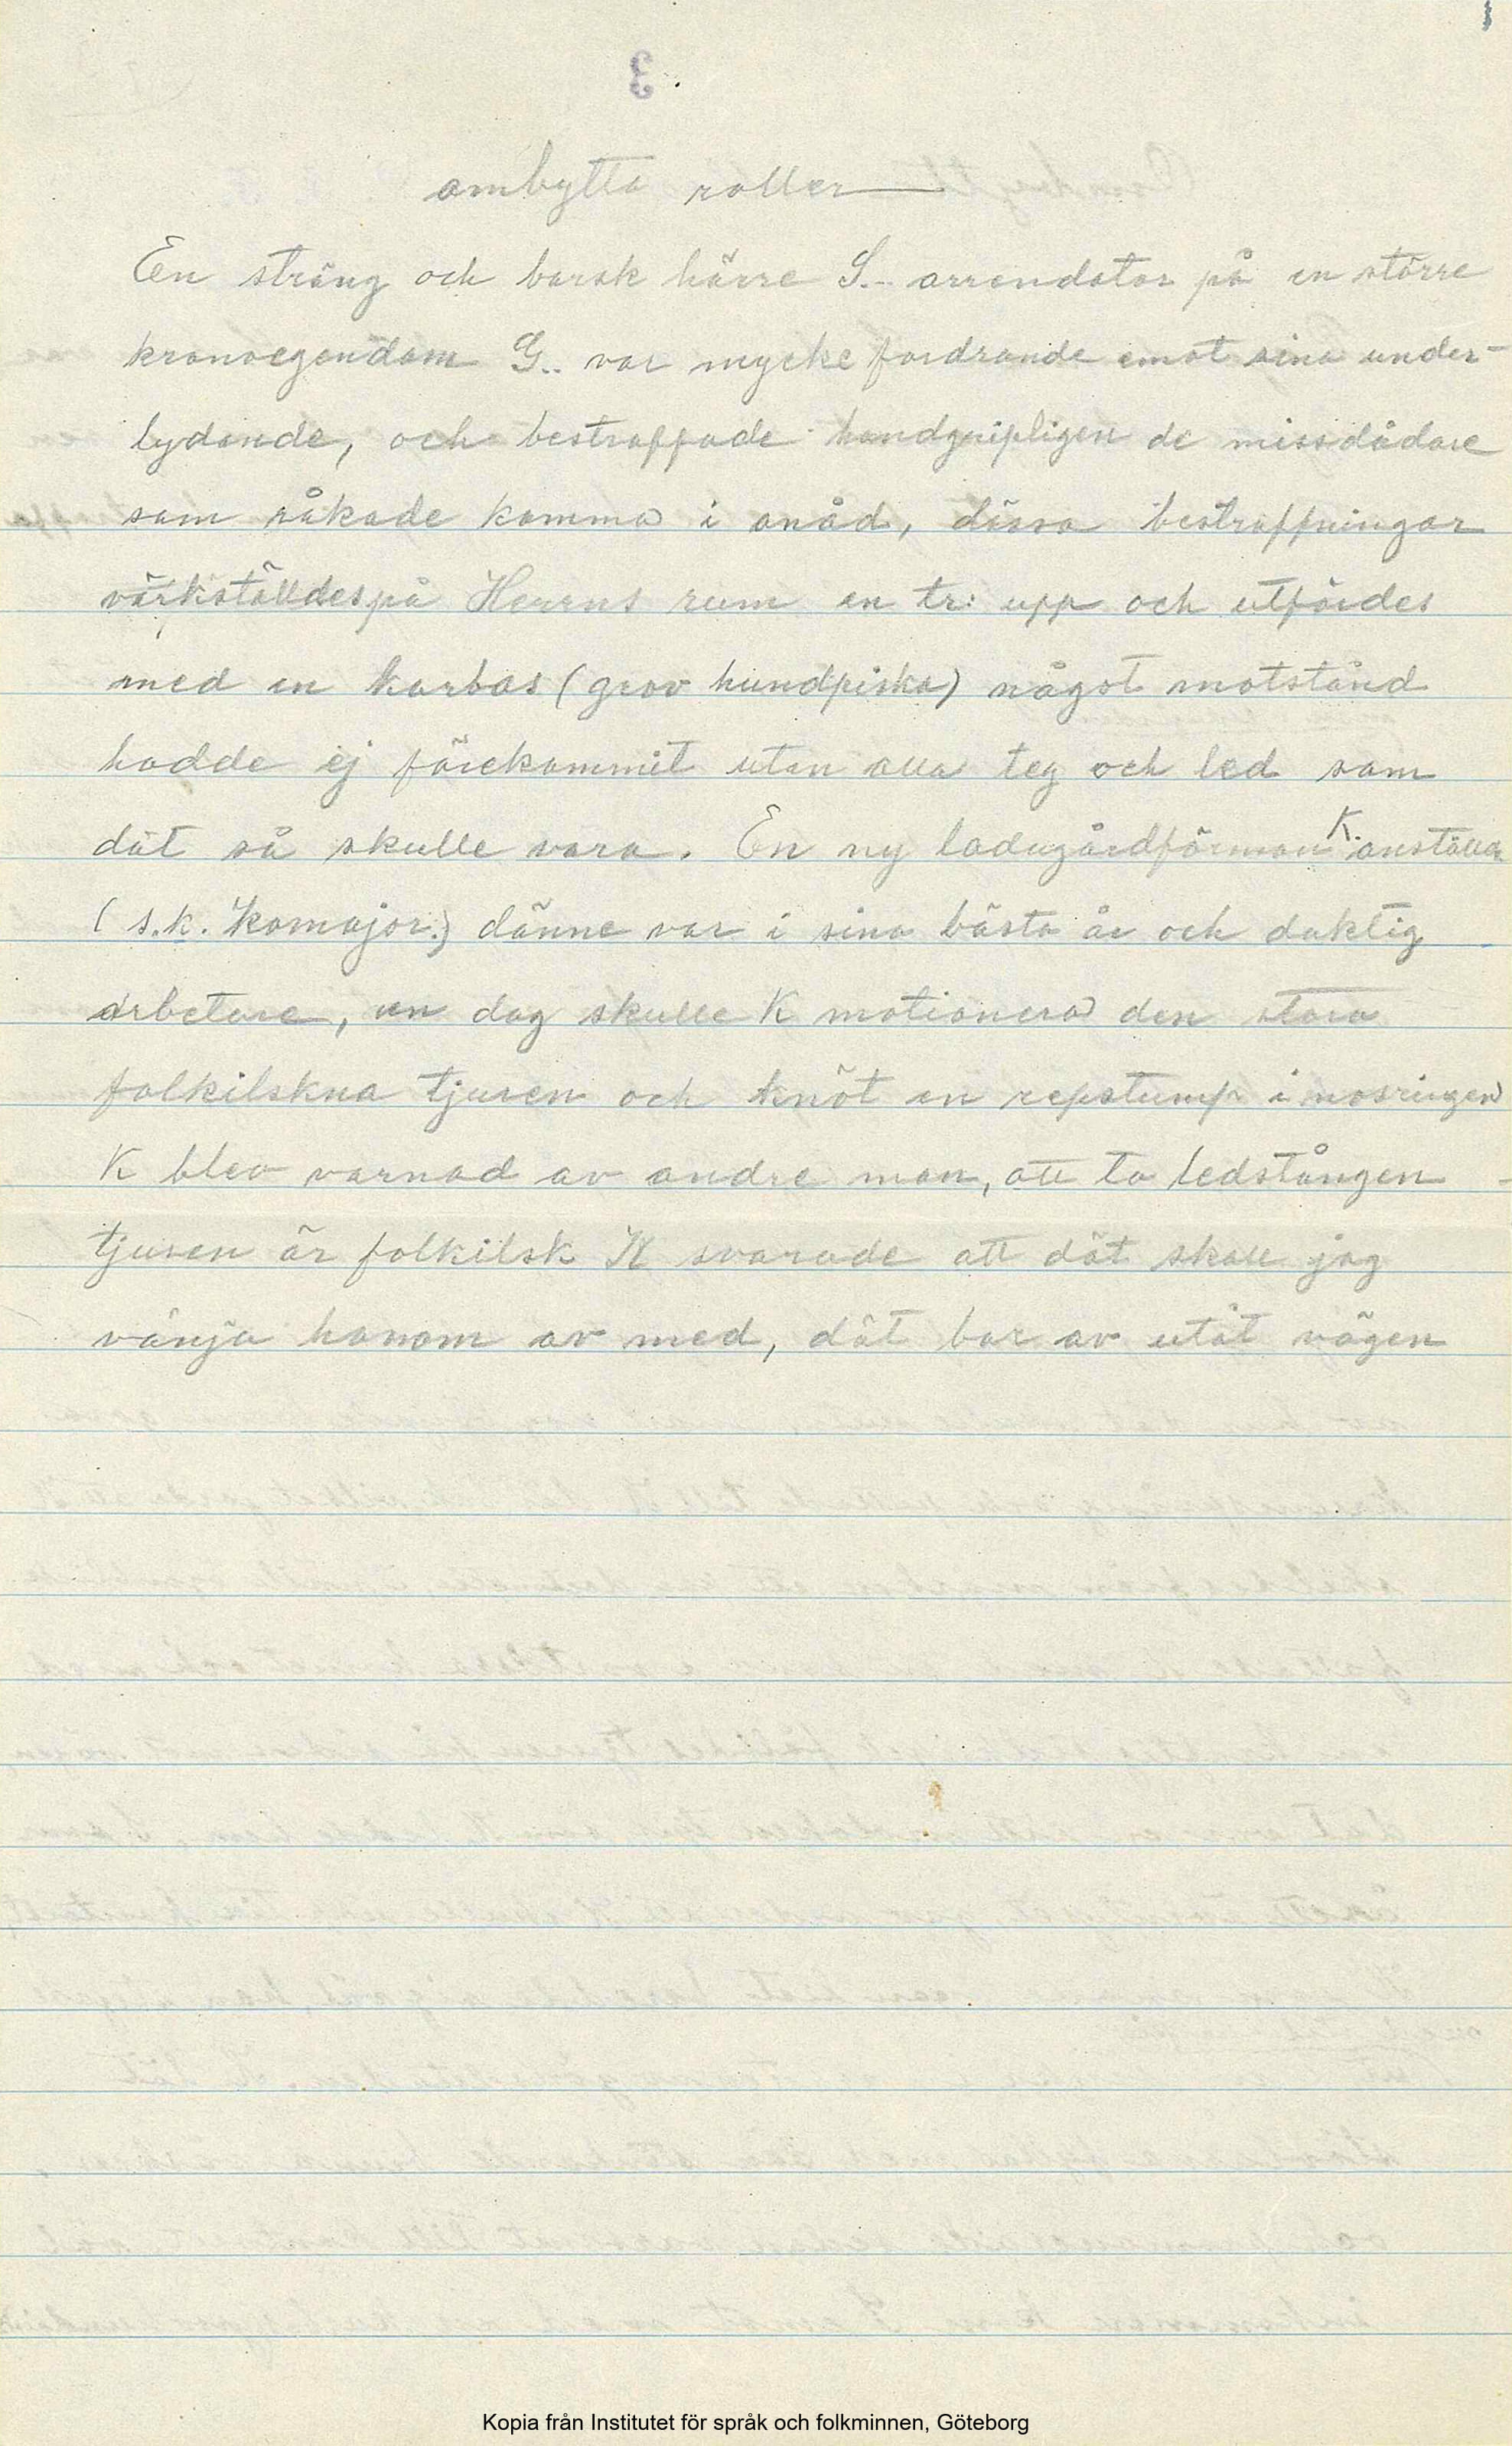 3.
ombytta roller
En sträng och barsk härre S.. arrendator på en större
kronoegendom G.. var mycke fordrande emot sina under-
lydande, och bestraffade handgripligen de missdådare
som råkade komma i onåd, dässa bestraffningar
värkställdes på Herrns rum en tr: upp och utfördes
med en karbas (grov hundpiska) något motstånd
hadde ej förekommit utan alla teg och led som
dät så skulle vara. En ny ladugårdförman K. anställdes
(s.k. komajor.) dänne var i sina bästa år och duktig
arbetare, en dag skulle K motionera den stora
folkilskna tjuren och knöt en repstump i nosringen
K blev varnad av andre man, att ta ledstången
tjuren är folkilsk K svarade att dät skall jag
vänja honom av med, dät bar av utåt vägen
Kopia från Institutet för språk och folkminnen, Göteborg